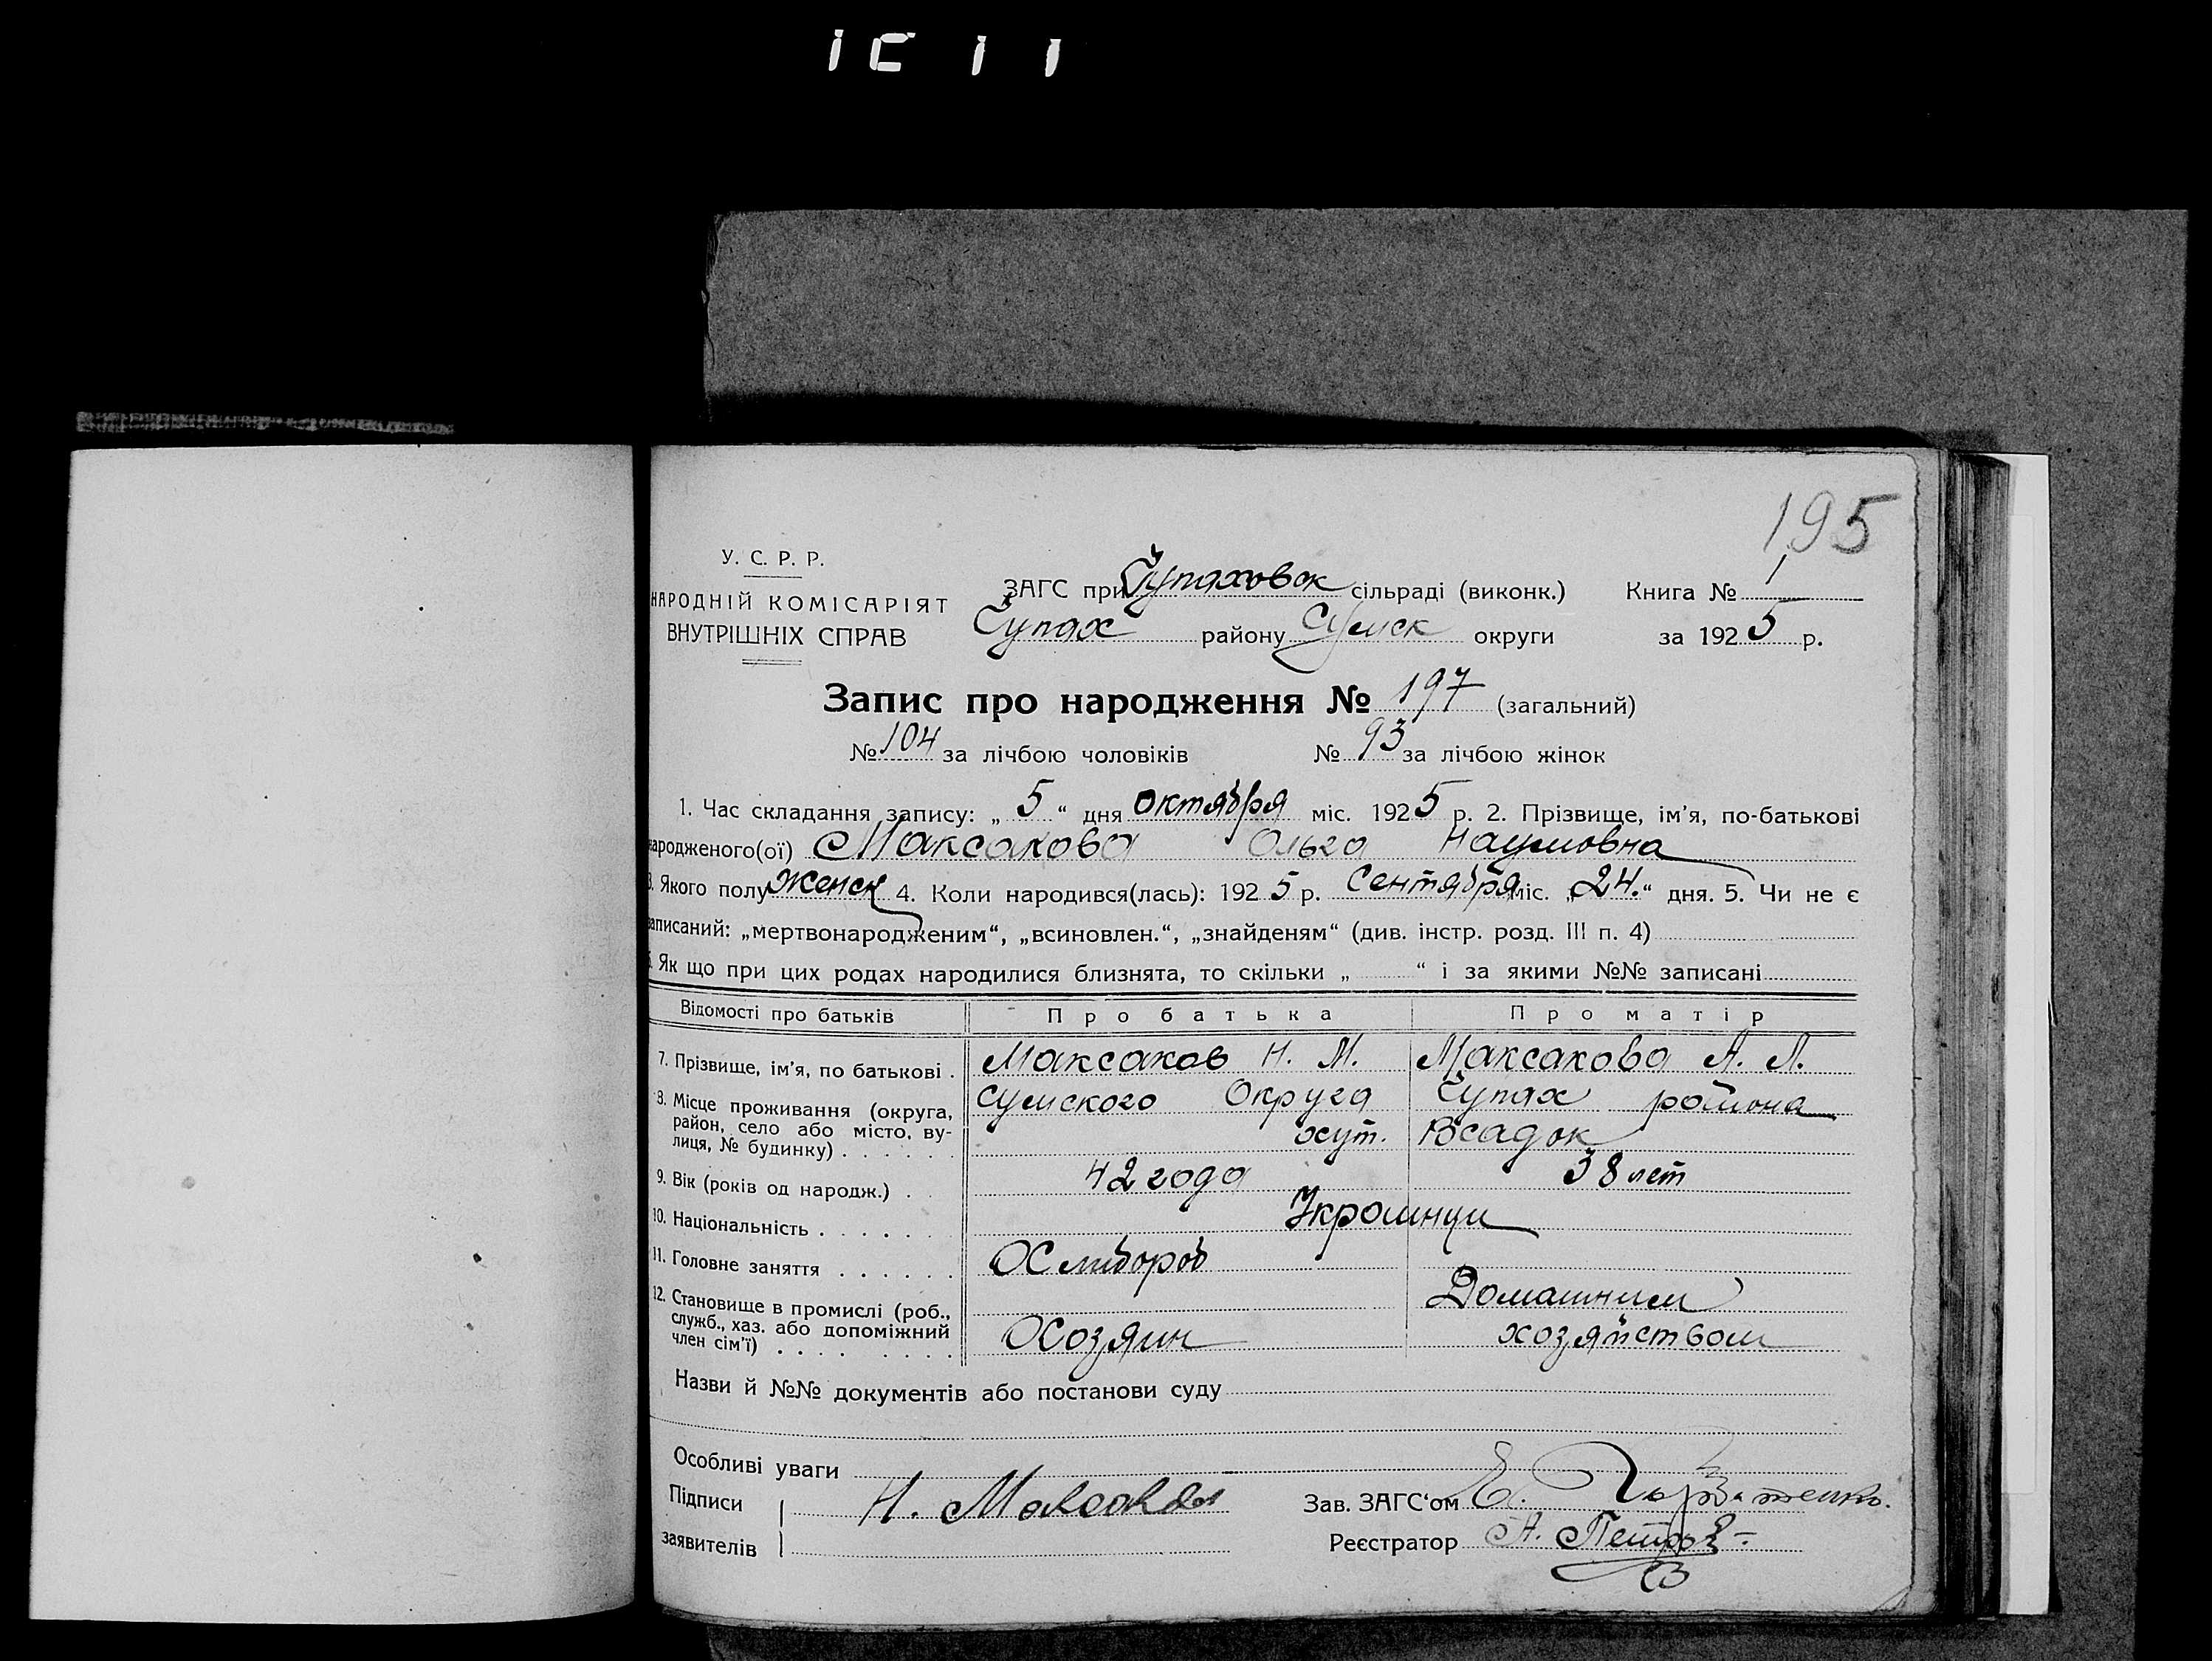 195
У. С. Р. Р.
НАРОДНІЙ КОМІСАРІЯТ
ВНУТРІШНІХ СПРАВ
ЗАГС при Чупаховск сільраді (виконк.) Книга № 1
Чупах району Сумск округи за 1925 р.
Запис про народження № 197 (загальний)
№ 104 за лічбою чоловіків № 93 за лічбою жінок
1. Час складання запису: „ 5 “ дня октября міс. 1925 р. 2. Прізвище, ім'я, по-батькові
народженого(ої) Максакова Ольга Наумовна
3. Якого полу женск 4. Коли народився(лась): 1925 р. Сентября міс. „24.“ дня. 5. Чи не є
записаний: „мертвонародженим“, „всиновлен.“, „знайденям“ (див. інстр. розд. III п. 4)
6. Як що при цих родах народилися близнята, то скільки „ “ і за якими №№ записані
Відомості про батьків Про батька Про матір
7. Прізвище, ім'я, по батькові . Максаков Н. М. Максакова А. Л.
8. Місце проживання (округа, Сумского Округа Чупах района
район, село або місто, ву- хут. Всадок
лиця, № будинку) . . . . . .
9. Вік (років од народж.) . . 42 года 38 лет
10. Національність . . . . . . . Украинци
11. Головне заняття . . . . . . Хлибороб
12. Становище в промислі (роб., Домашним
служб., хаз. або допоміжний Хозяин хозяйством
член сім'ї) . . . . . . . .
Назви й №№ документів або постанови суду
Особливі уваги
Підписи Н. Максаков Зав. ЗАГС'ом Е.
заявителів Реєстратор А. Петров